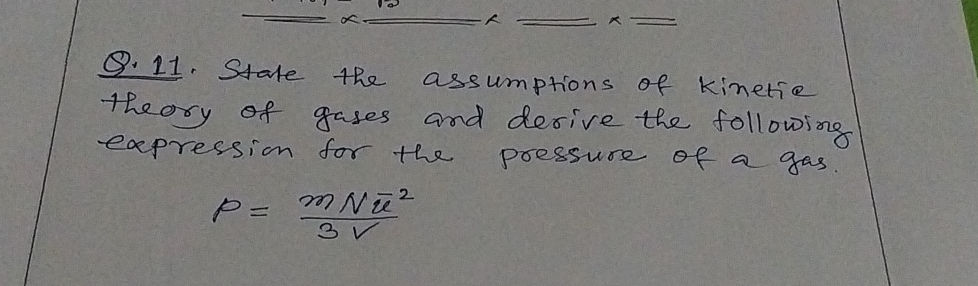 Q. 11. State the assumptions of kinetic
theory of gases and derive the following
expression for the pressure of a gas.
P = mNū²
3V